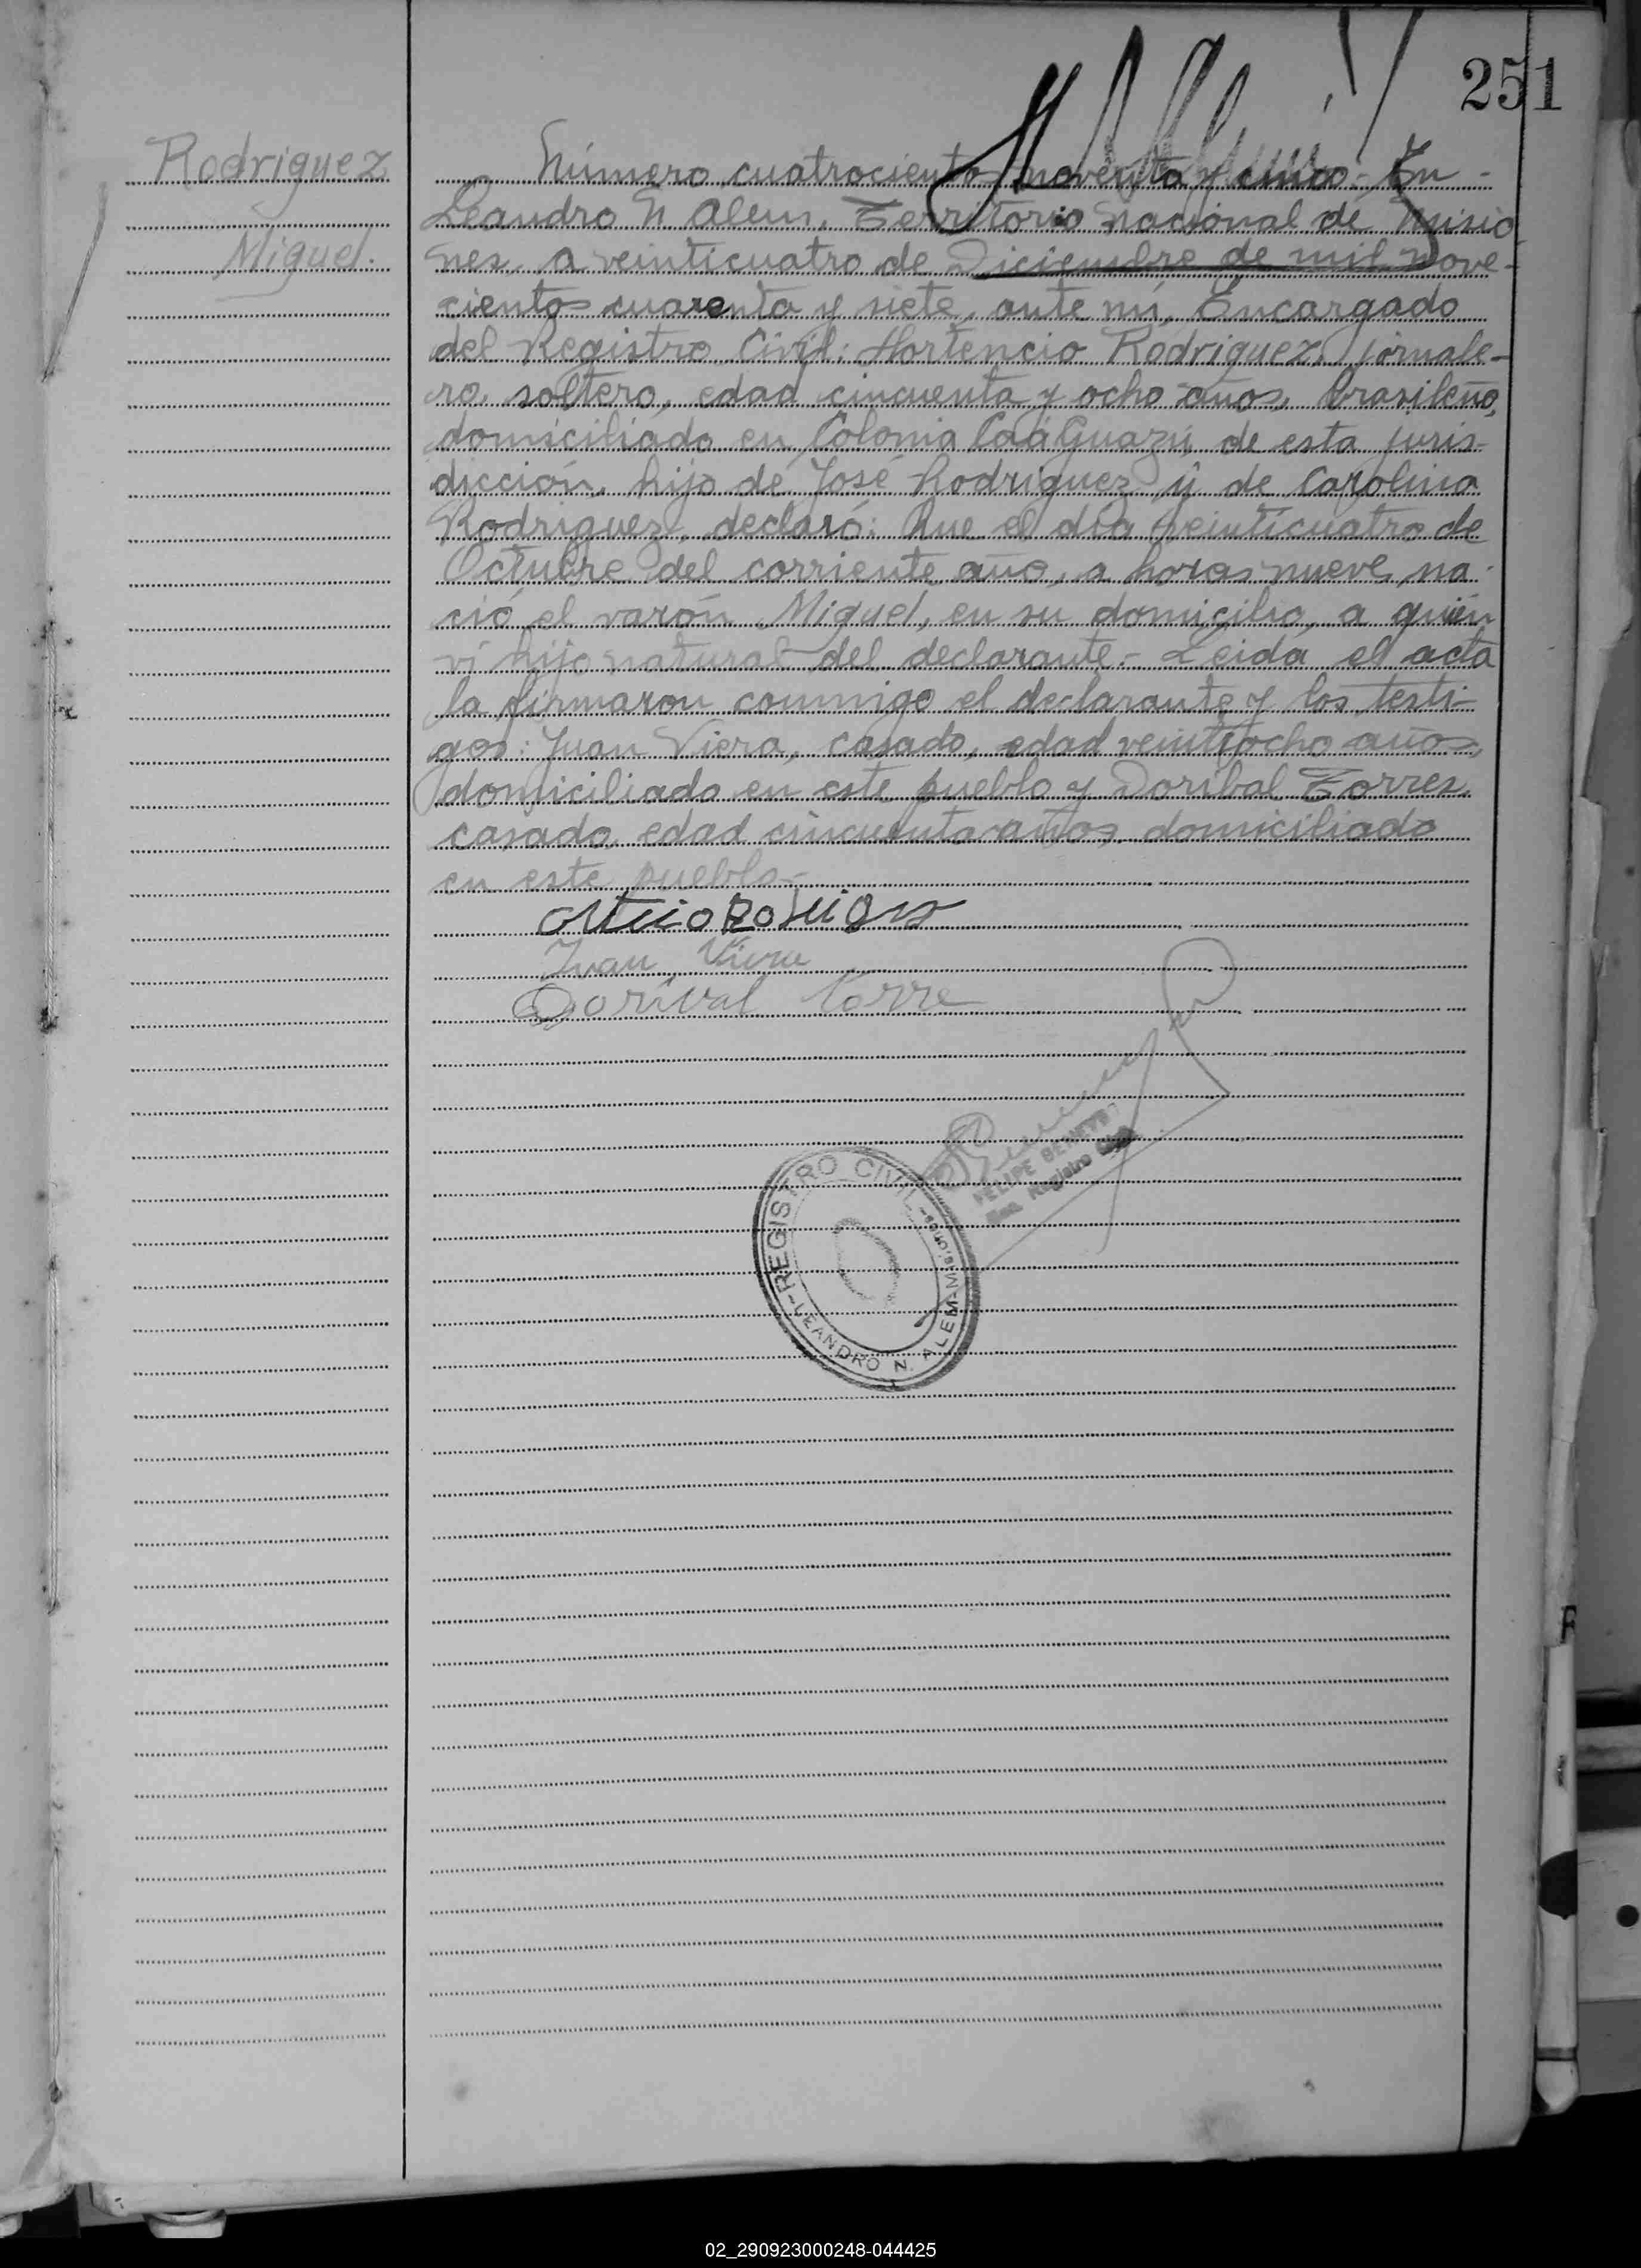 251
Rodriguez
Miguel.
Número cuatrocientos noventa y cinco.- En
Leandro N. Alem, Territorio Nacional de Misio
nes, a veinticuatro de Diciembre de mil nove-
cientos cuarenta y siete, ante mí, Encargado
del Registro Civil: Hortencio Rodriguez, jornale-
ro, soltero, edad cincuenta y ocho años, brasileño,
domiciliado en Colonia CaáGuazú, de esta juris-
dicción, hijo de José Rodriguez y de Carolina
Rodriguez, declaró: Que el día veinticuatro de
Octubre del corriente año, a horas nueve, na-
ció el varón Miguel, en su domicilio, a quien
vi hijo natural del declarante.- Leida el acta
la firmaron conmigo el declarante y los testi-
gos: Juan Viera, casado, edad veintiocho años,
domiciliado en este pueblo y Doribal Torres,
casado, edad cincuenta años, domiciliado
en este pueblo.-
Juan Viera
Dorival Torre
FELIPE
Enc. Registro Civil
REGISTRO CIVIL
-LEANDRO N. ALEM-Misiones-
02_290923000248-044425